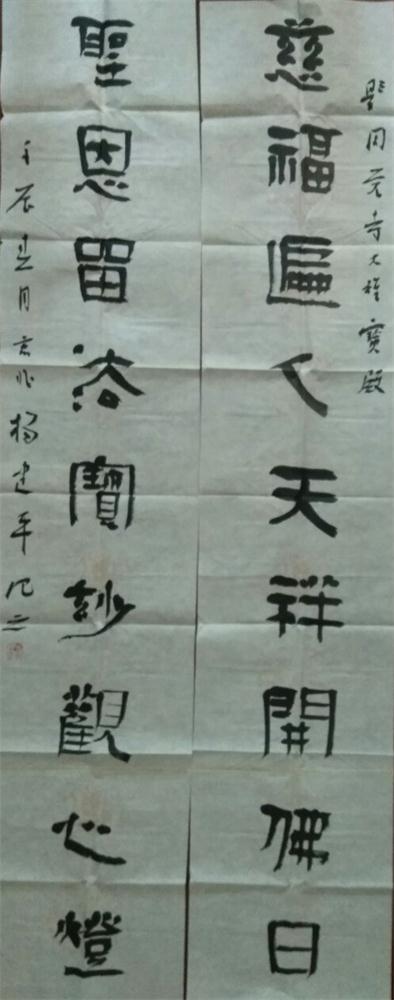 圣同元寺大雄寶殿
慈福遍人天祥開佛日
聖恩留法寶妙觀心燈
壬辰孟月 楊建平